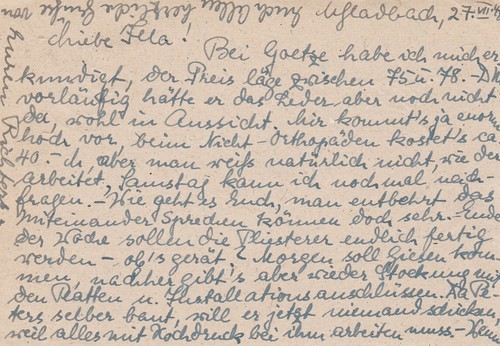 M.Gladbach, 27. VII. 4
Liebe Illa!
Bei Goetze habe ich mich er-
kundigt, der Preis läge zwischen 75 u. 78.- DM
vorläufig hätte er das Leder aber noch nicht
da, wohl in Aussicht. Mir kommt's ja enorm
hoch vor, beim Nicht-Orthopäden kostet's ca
40.- M aber man weiss natürlich nicht wie der
arbeitet, Samstag kann ich nochmal nach-
fragen. - Wie geht es Euch, man entbehrt das
Miteinander Sprechen können doch sehr. - Ende
der Woche sollen die Plüsterer endlich fertig
werden - ob's gerät? Morgen soll Giesen kom-
men, nachher gibt's aber wieder Stockung mit
den Platten u. Installationsanschlüssen. Da Pe-
ters selber baut, will er jetzt niemand schicken,
weil alles mit Hochdruck bei ihm arbeiten muss. -
Euch allen herzliche Grüße von
Euren